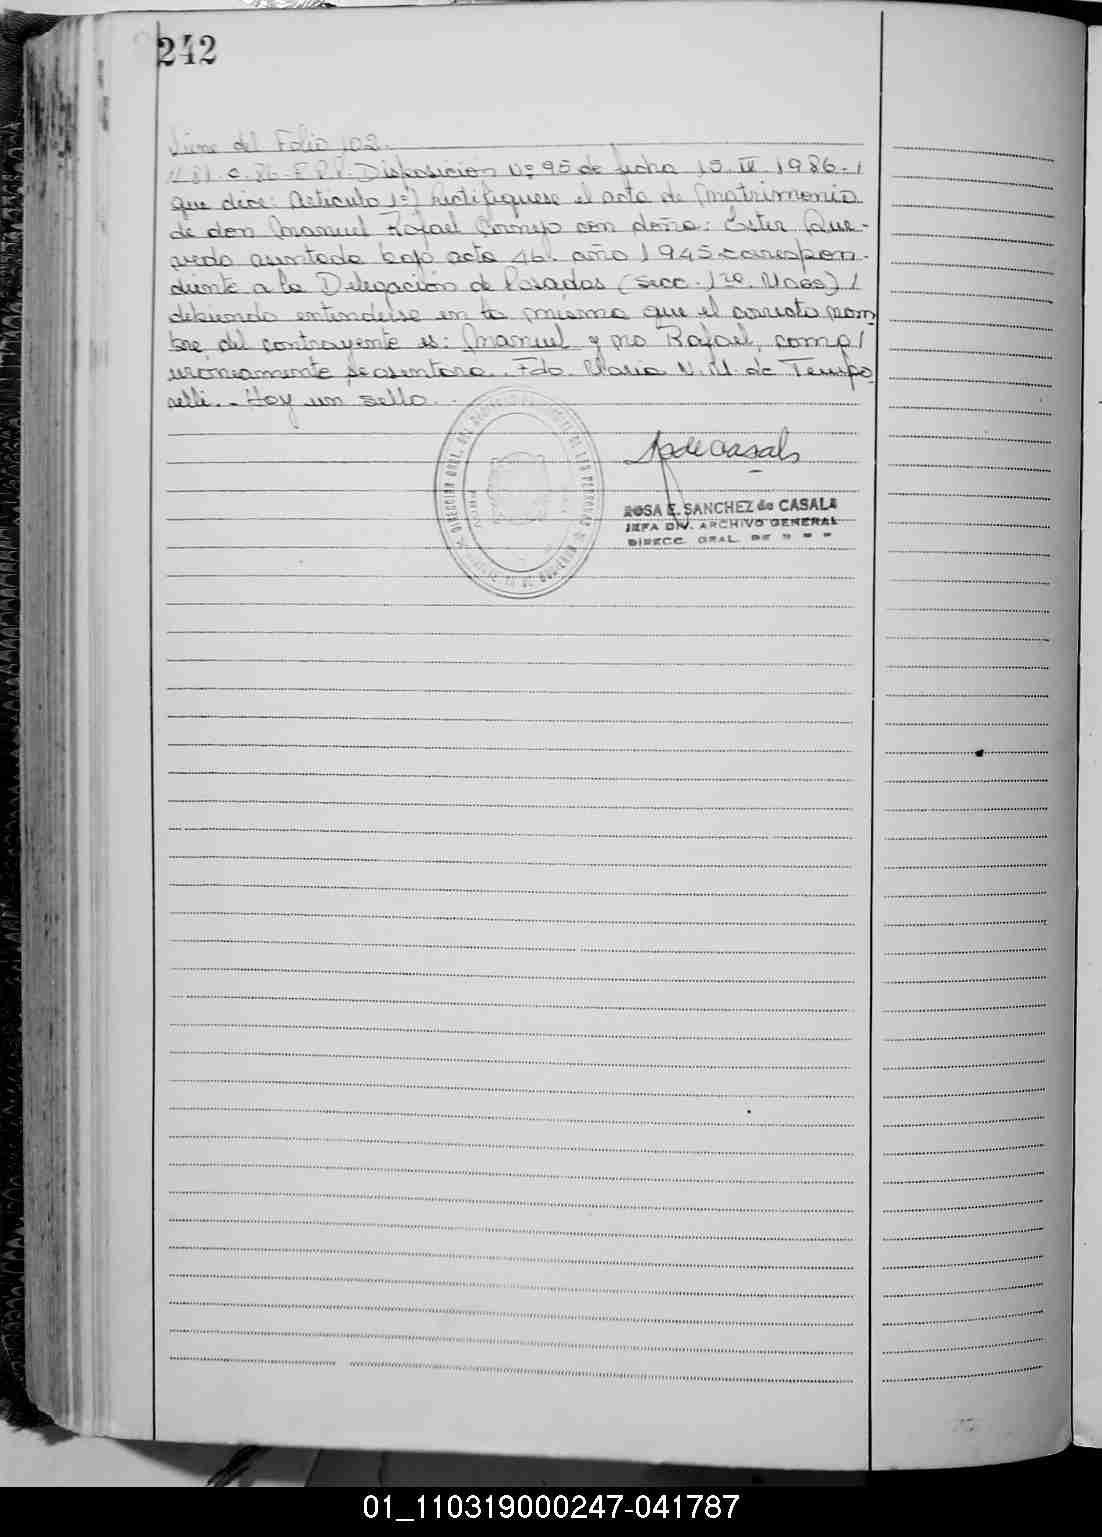 242
Viene del Folio 102.
Disposición Nº 95 de fecha 15. IV. 1986. /
que dice: Articulo 1º) Rectifiquese el acta de Matrimonio
de don Manuel Rafael Cornejo con doña: Ester Que-
vedo asentada bajo acta 46. año 1945 correspon-
diente a la Delegación de Posadas (Secc. 1ra. Mnes) /
debiendo entenderse en la misma que el correcto nom
bre, del contrayente es: Manuel y no Rafael, como /
erroneamente se asentara. Fdo. Maria N. M. de Tempo
relli. - Hoy un sello.
ROSA E. SANCHEZ de CASALS
JEFA DIV. ARCHIVO GENERAL
DIRECC. GRAL. DE
01_110319000247-041787